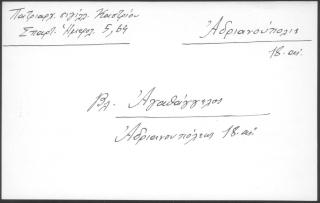 Πατριαρχ. σιγίλλ. Καστρίου
Σπαρτ. Ἡμερολ. 5, 64
Ἀδριανούπολις
18. αἰ.
Βλ. Ἀγαθάγγελος
Ἀδριανουπόλεως 18. αἰ.